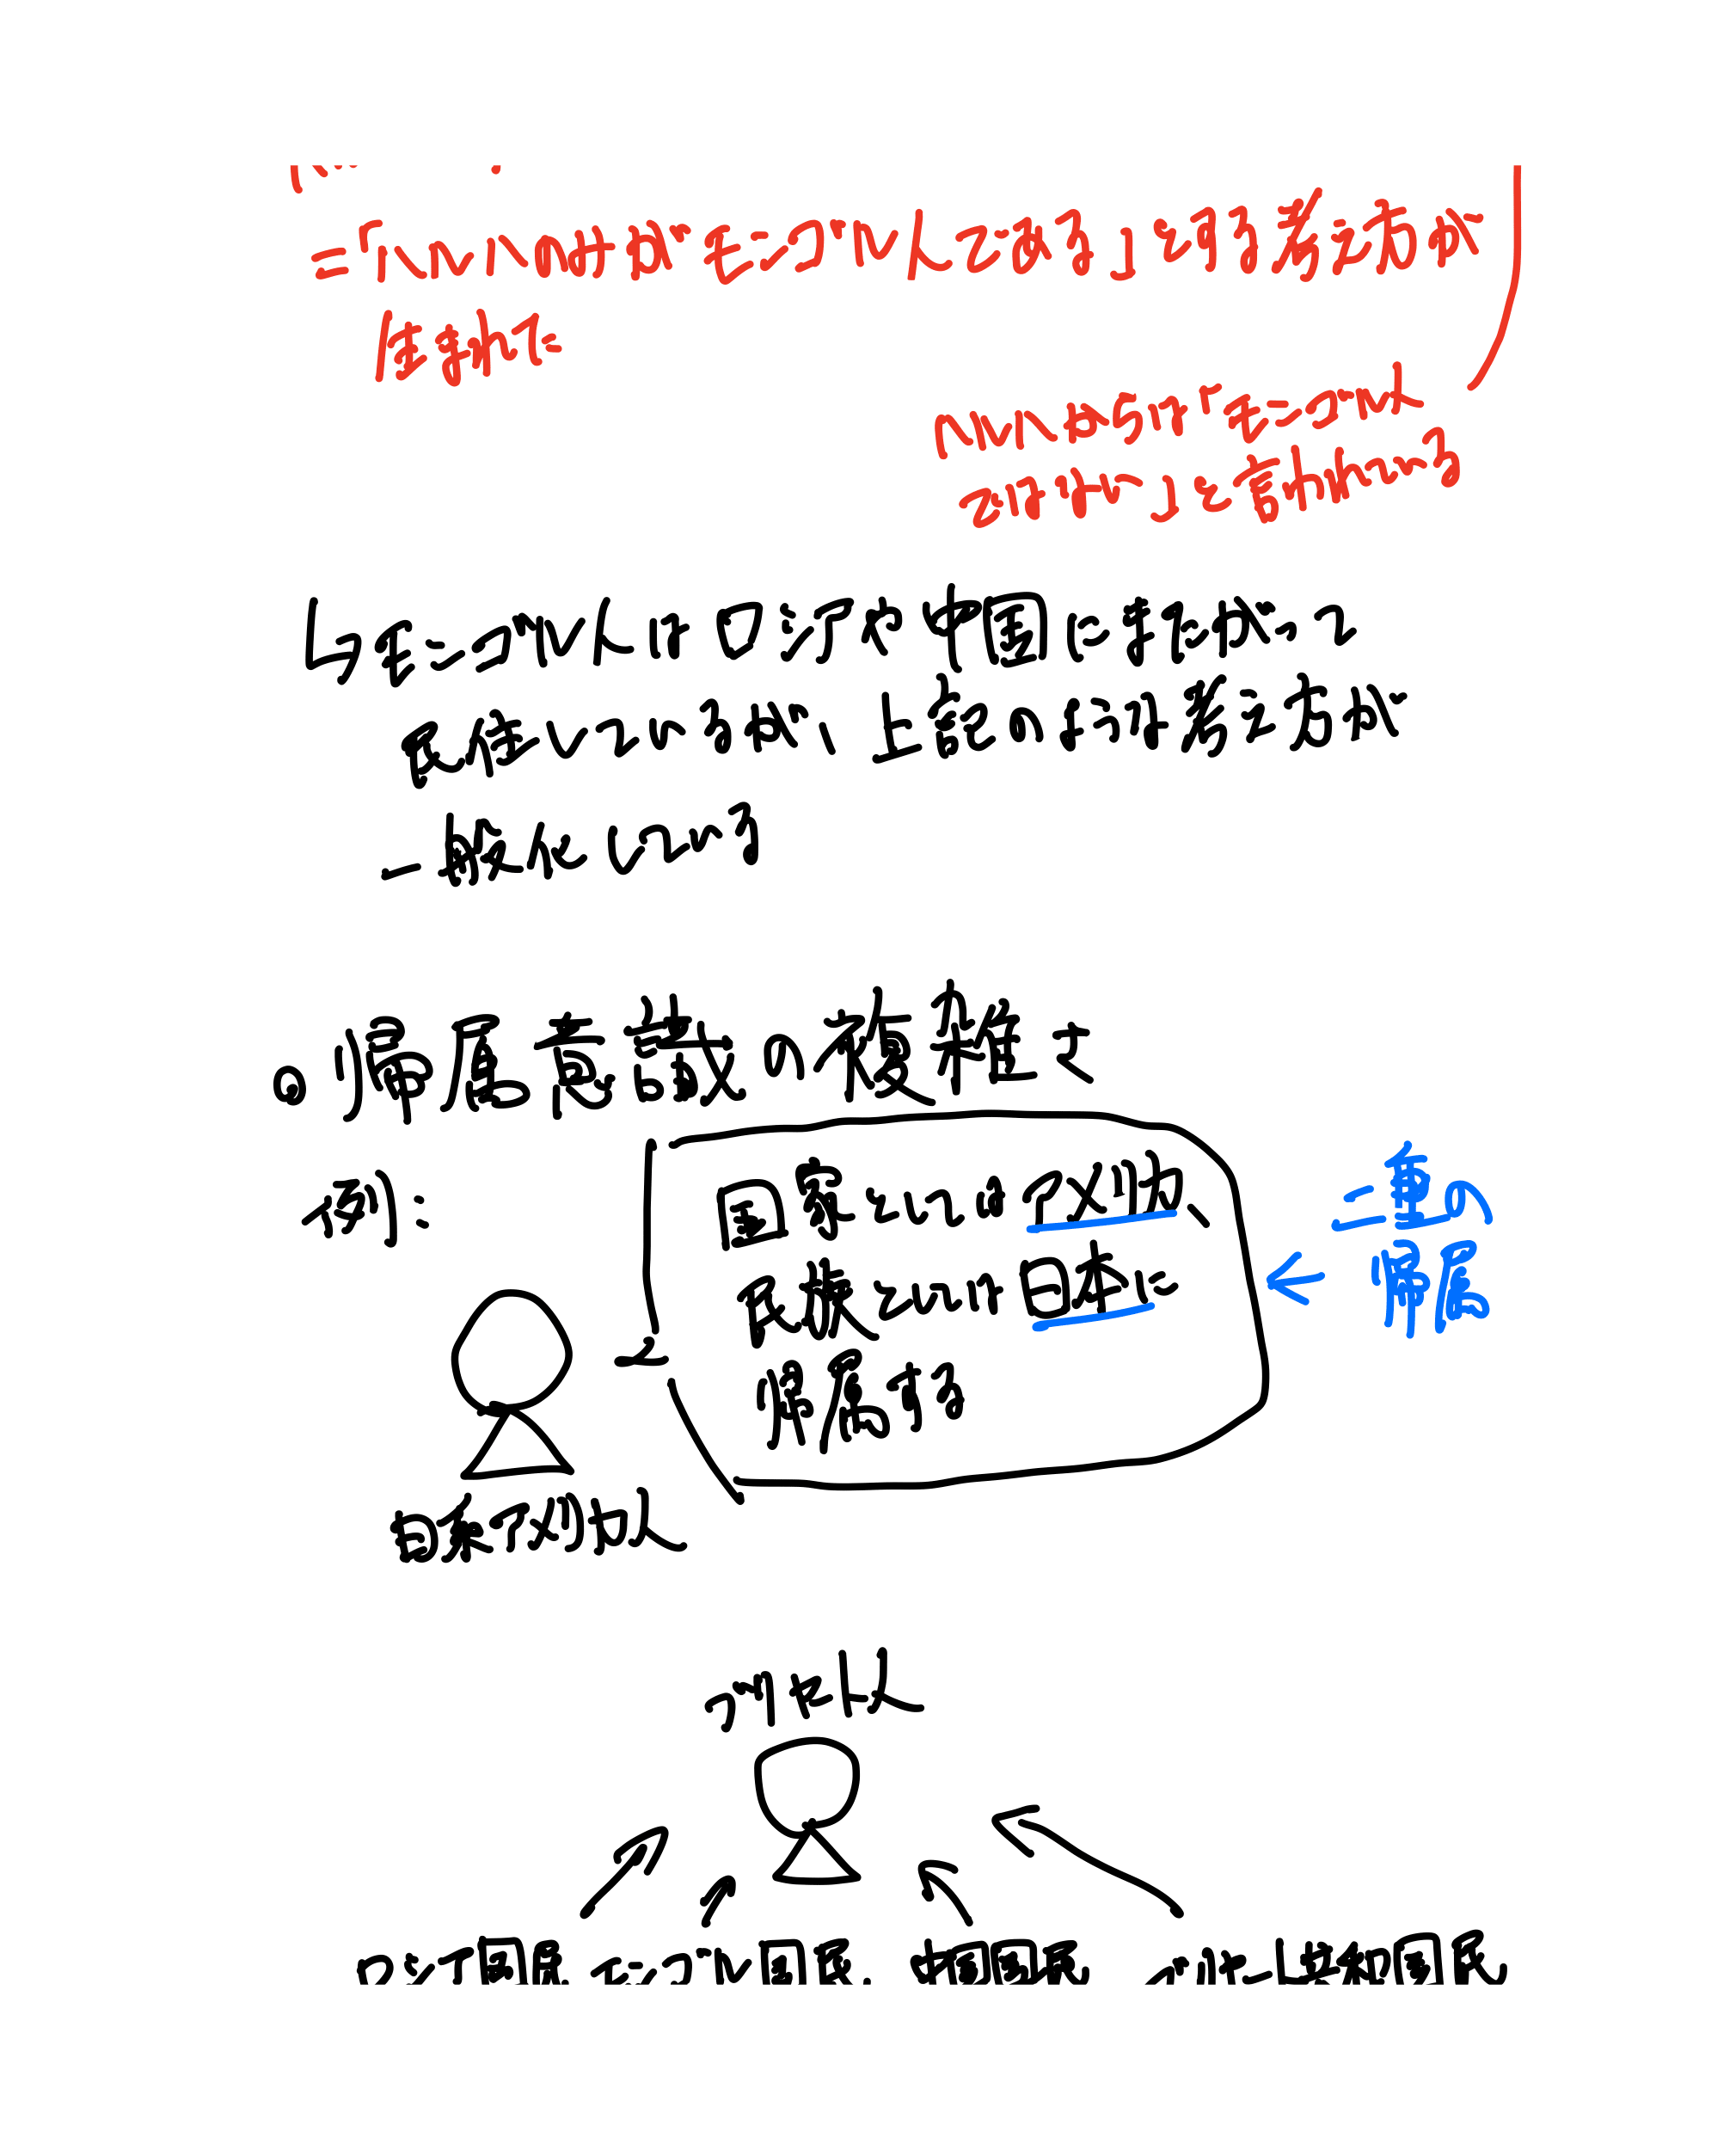 =「ハルハのみがモンゴル人である」という考え方が
生まれた
ハルハ 「モンゴル人
ではない」と言われている
↳モンゴル人はロシアや中国にまたがって
しているが、上記のような考え方が
一般化している
○帰属意識の複雑さ
例:
国家としてはアメリカ、
民族としては日本に
帰属する
二重の
帰属
日系アメリカ人
ブリヤート人
ロシア国民 モンゴル国民 中国国民 国民